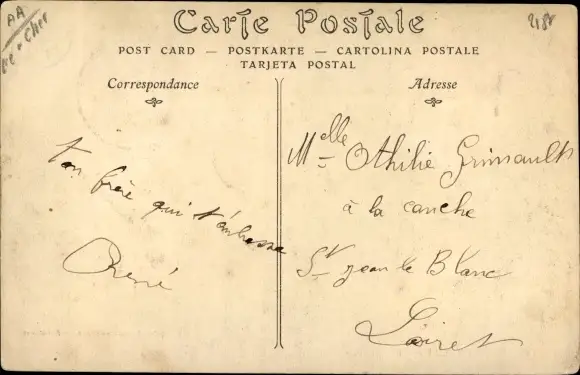 AA
Carte Postale
2188
POST CARD — POSTKARTE — CARTOLINA POSTALE
TARJETA POSTAL
Correspondance
Adresse
ton frère qui t'embrasse
René
Melle Othilie Grimault
à la canche
St jean le Blanc
Loiret